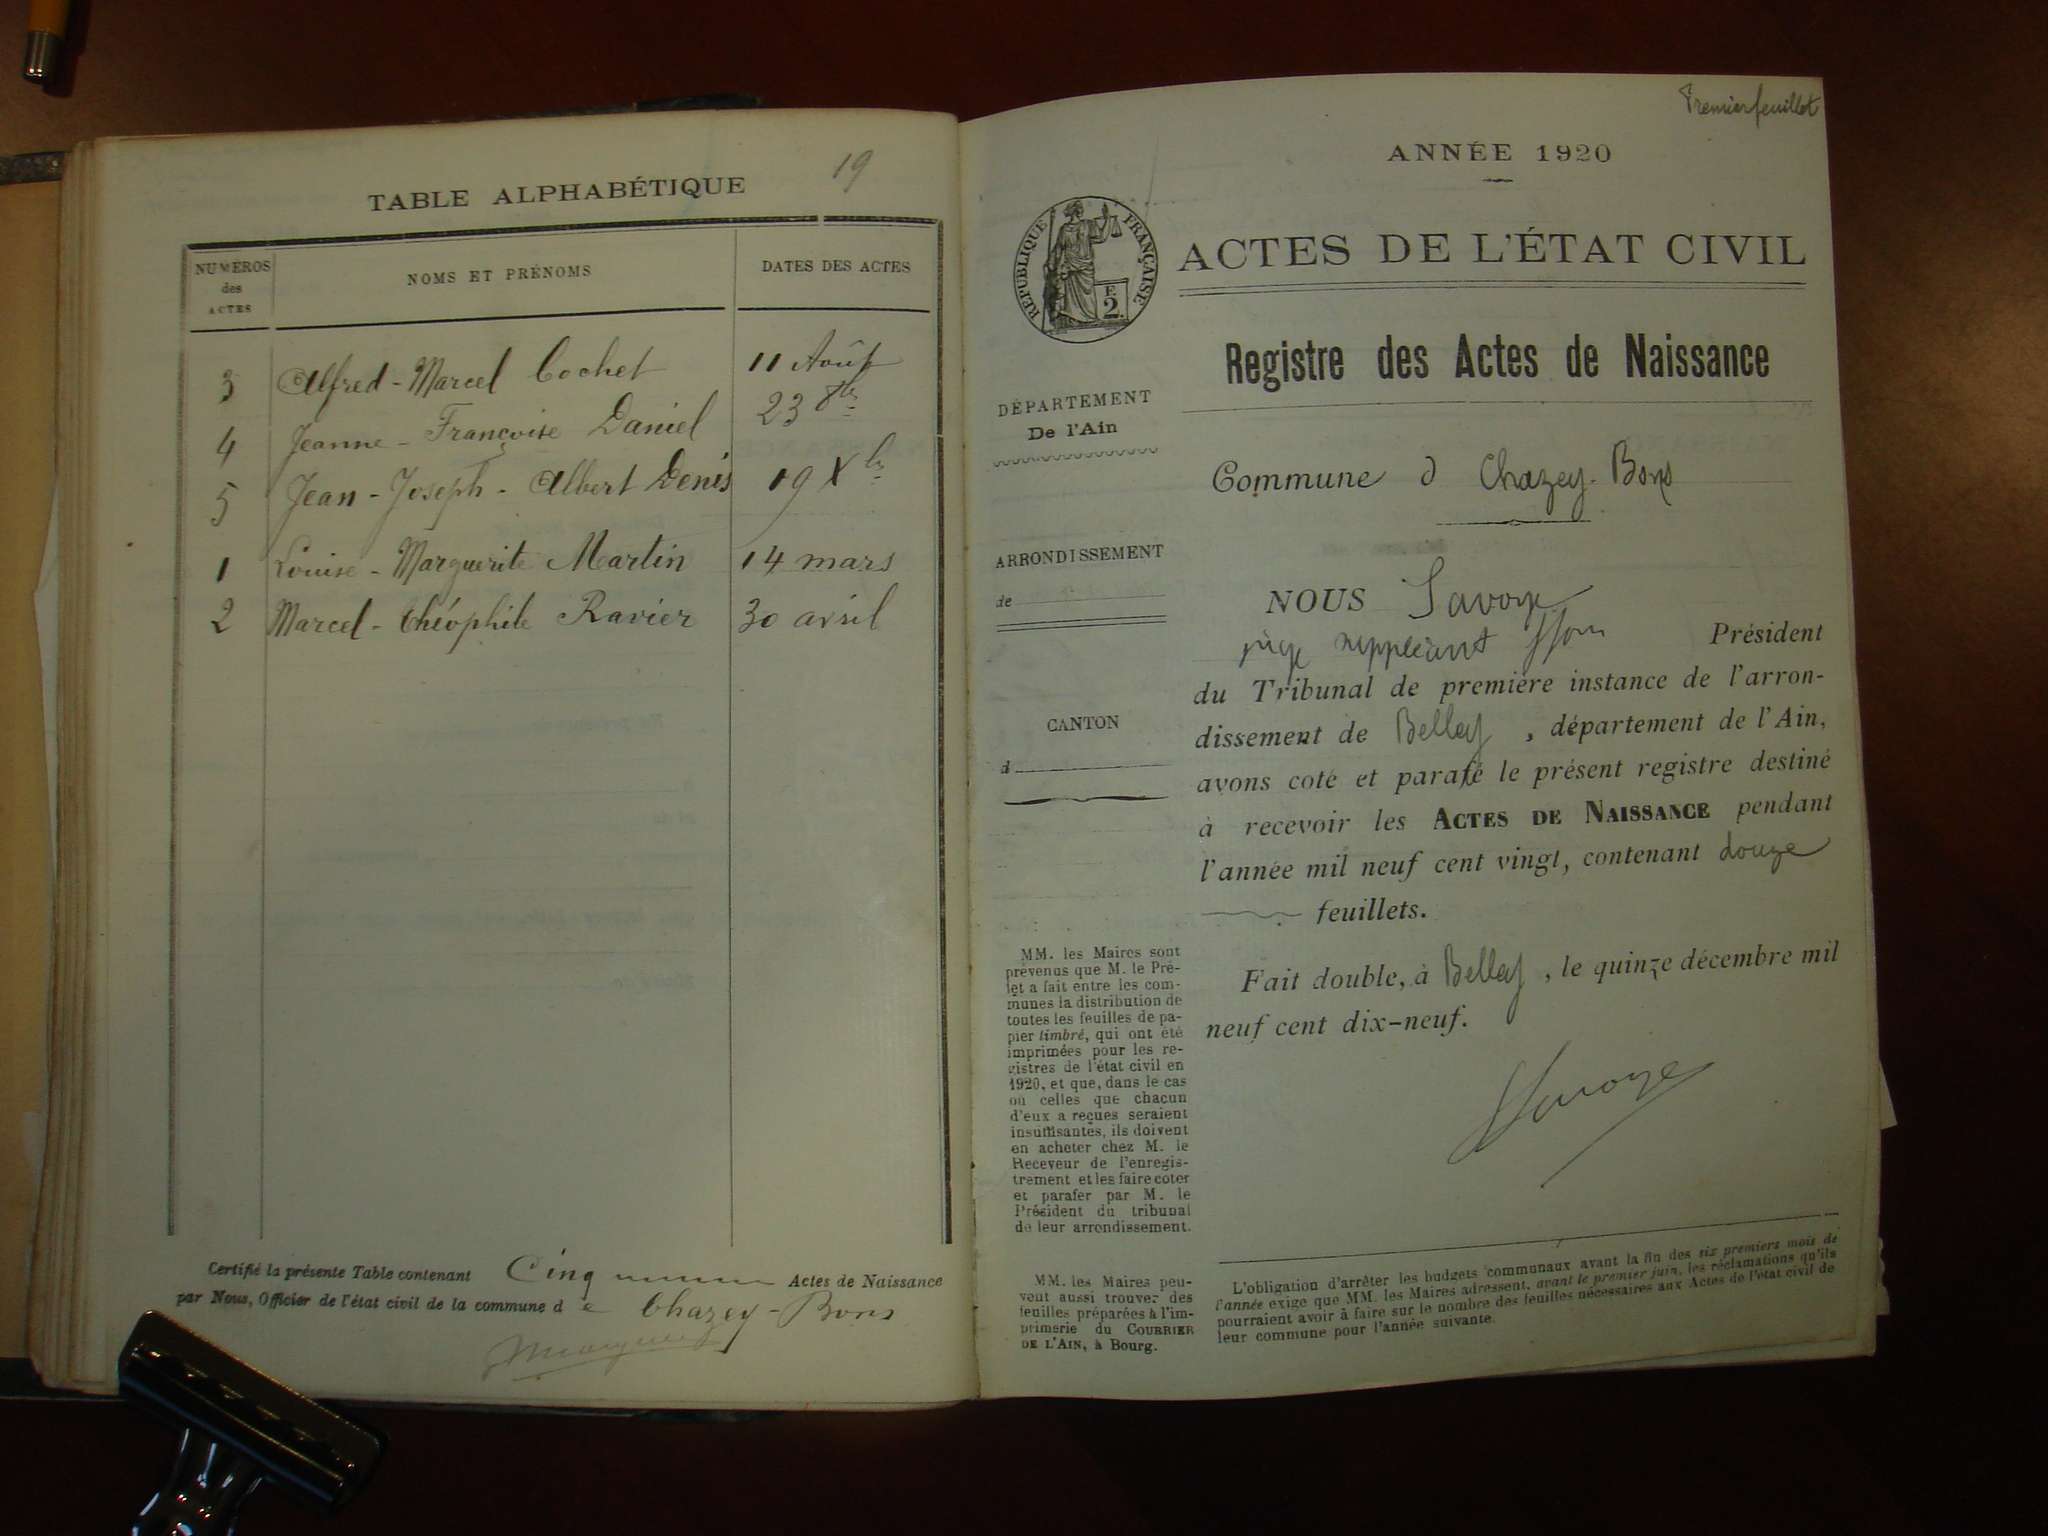 19
TABLE ALPHABÉTIQUE
NUMÉROS des ACTES
NOMS ET PRÉNOMS
DATES DES ACTES
3 Alfred-Marcel Cochet 11 Août
4 Jeanne-Françoise Daniel 23 8bre
5 Jean-Joseph-Albert Denis 19 Xbre
1 Louise-Marguerite Martin 14 mars
2 Marcel-Théophile Ravier 30 avril
Certifié la présente Table contenant Cinq Actes de Naissance
par Nous, Officier de l'état civil de la commune de Chazey-Bons
Premier feuillet
ANNÉE 1920
RÉPUBLIQUE FRANÇAISE
F. 2.
ACTES DE L'ÉTAT CIVIL
Registre des Actes de Naissance
DÉPARTEMENT
De l'Ain
ARRONDISSEMENT
de
CANTON
d
MM. les Maires sont
prévenus que M. le Pré-
fet a fait entre les com-
munes la distribution de
toutes les feuilles de pa-
pier timbré, qui ont été
imprimées pour les re-
gistres de l'état civil en
1920, et que, dans le cas
où celles que chacun
d'eux a reçues seraient
insuffisantes, ils doivent
en acheter chez M. le
Receveur de l'enregis-
trement et les faire coter
et parafer par M. le
Président du tribunal
de leur arrondissement.
MM. les Maires peu-
vent aussi trouver des
feuilles préparées à l'im-
primerie du COURRIER
DE L'AIN, à Bourg.
Commune d Chazey-Bons
NOUS Savoye
juge suppléant Président
du Tribunal de première instance de l'arron-
dissement de Belley, département de l'Ain,
avons coté et parafé le présent registre destiné
à recevoir les ACTES DE NAISSANCE pendant
l'année mil neuf cent vingt, contenant douze
feuillets.
Fait double, à Belley, le quinze décembre mil
neuf cent dix-neuf.
Savoye
L'obligation d'arrêter les budgets communaux avant la fin des six premiers mois de
l'année exige que MM. les Maires adressent, avant le premier juin, les réclamations qu'ils
pourraient avoir à faire sur le nombre des feuilles nécessaires aux Actes de l'état civil de
leur commune pour l'année suivante.